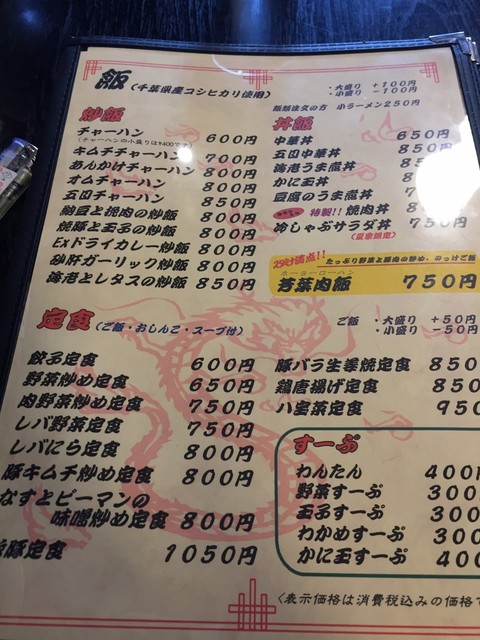 飯（千葉県産コシヒカリ使用）
・大盛り +100円
・小盛り -100円
飯類注文の方 小ラーメン250円
炒飯
チャーハン 600円
（チャーハンの小盛りは¥400です）
キムチチャーハン 700円
あんかけチャーハン 800円
オムチャーハン 800円
五目チャーハン 800円
納豆と挽肉の炒飯 850円
焼豚と玉子の炒飯 800円
Exドライカレー炒飯 800円
砂肝ガーリック炒飯 800円
海老とレタスの炒飯 850円
丼飯
中華丼 650円
五目中華丼
海老うま煮丼
かに玉丼
豆腐のうま煮丼
特製!!焼肉丼
冷しゃぶサラダ丼 750円
（夏季限定）
たっぷり野菜と豚肉の炒め、のっけご飯
ホーヨーローハン
芳葉肉飯 750円
定食（ご飯・おしんこ・スープ付）
ご飯 ・大盛り +50円
・小盛り -50円
餃子定食 600円
野菜炒め定食 650円
肉野菜炒め定食 750円
レバ野菜定食 750円
レバにら定食 800円
豚キムチ炒め定食 800円
なすとピーマンの
味噌炒め定食 800円
豚定食 1050円
豚バラ生姜焼定食 850
鶏唐揚げ定食 850
八宝菜定食 950
すーぷ
わんたん 400円
野菜すーぷ 300
玉子すーぷ 300
わかめすーぷ 300
かに玉すーぷ 400
〈表示価格は消費税込みの価格で